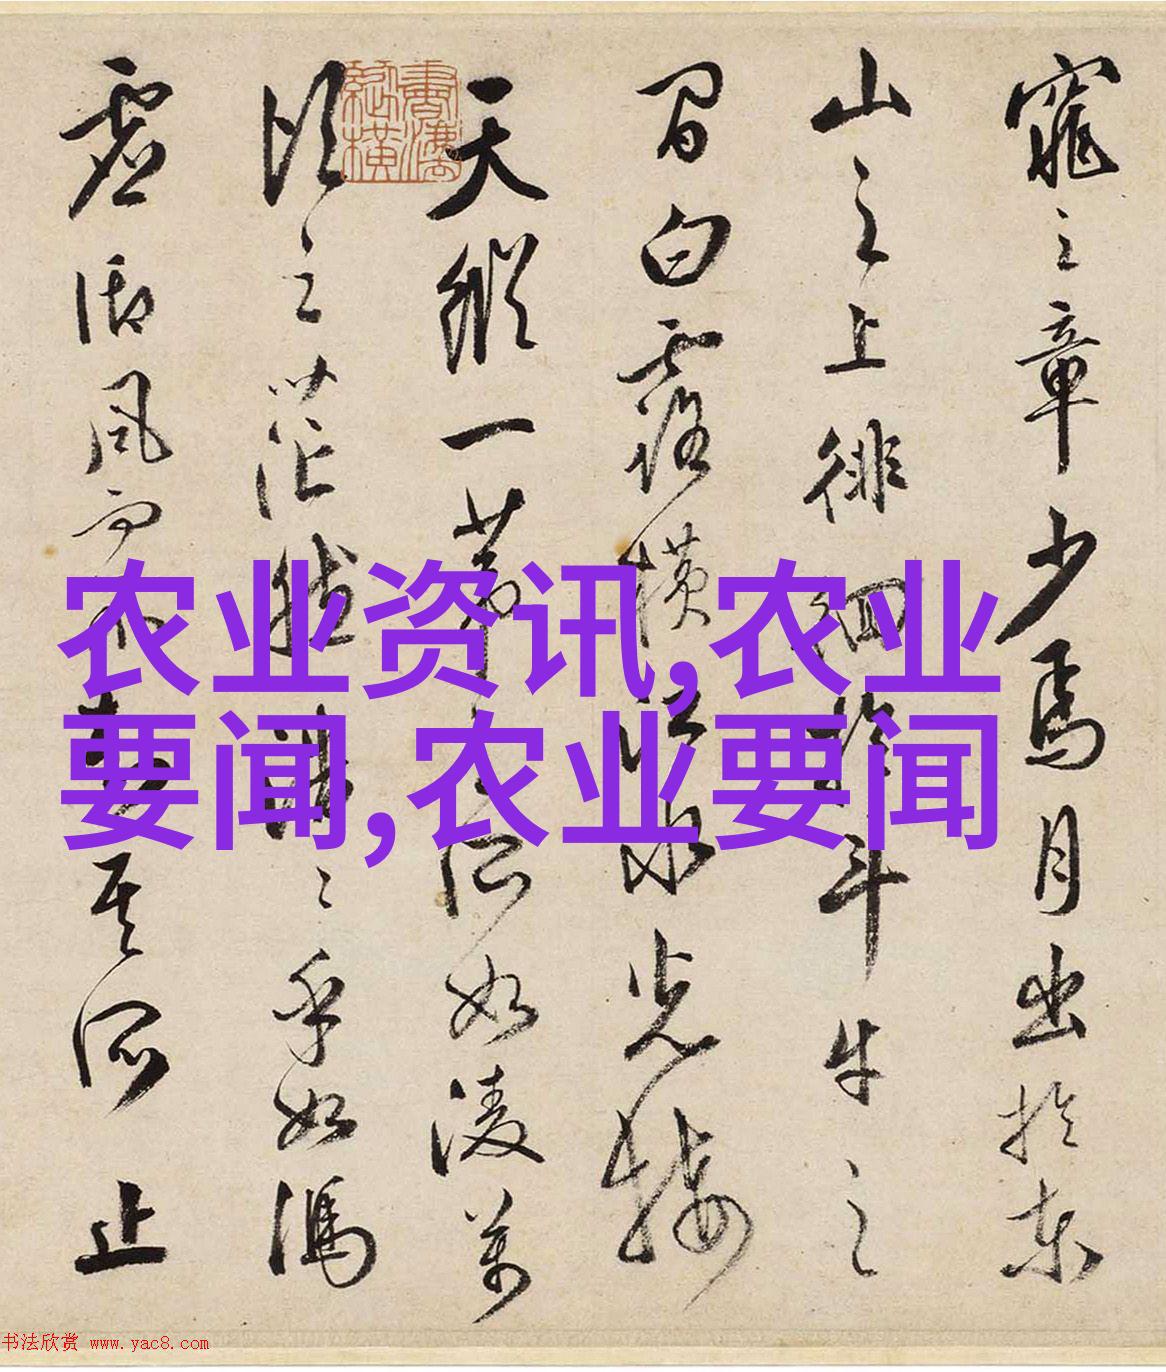 窕之章少焉月出於東
山之上徘徊於斗牛之
間白露橫江水光接
天縱一葦之所如凌萬
頃之茫然浩浩乎如馮
虛御風而不知其所止
書譜縱橫
农业资讯,农业
要闻,农业要闻
书法欣赏 www.yac8.com